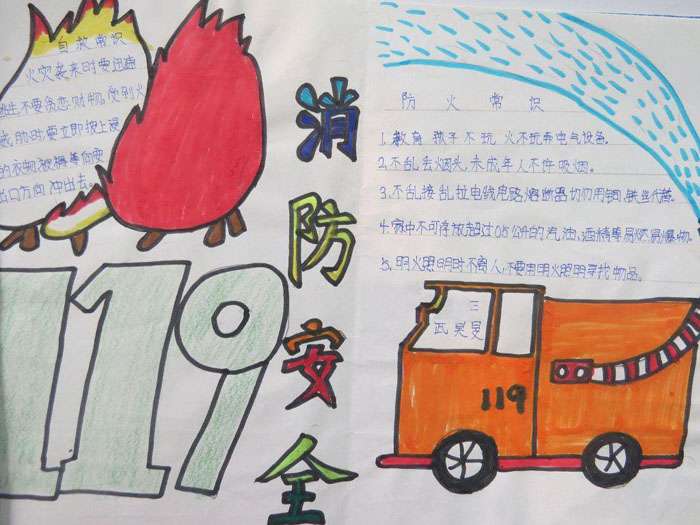 自救常识
火灾袭来时要迅速
逃生,不要贪恋财物,受到火
威胁时要立即披上浸
的衣物被褥等向安
出口方向冲出去。
119
消防安全
防火常识
1.教育孩子不玩火不玩弄电气设备.
2.不乱丢烟头,未成年人不许吸烟.
3.不乱接乱拉电线电路熔断器切勿用铜,铁丝代替.
4.家中不可存放超过05公升的汽油、酒精等易燃易爆物.
5.明火照明时不离人,不要用明火照明寻找物品.
三
武昊旻
119